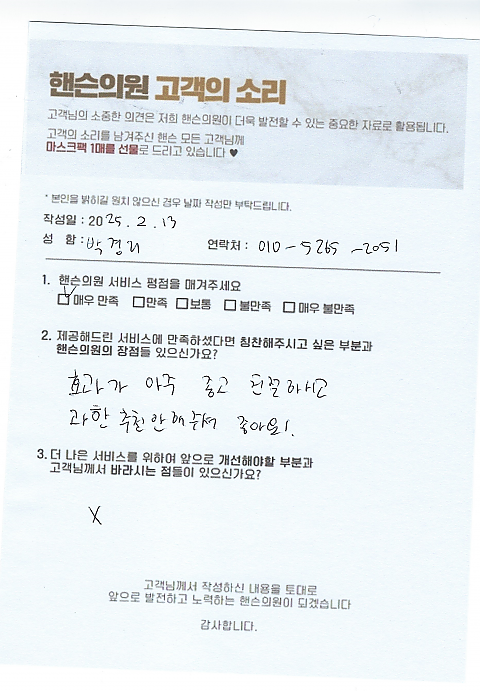 핸슨의원 고객의 소리
고객님의 소중한 의견은 저희 핸슨의원이 더욱 발전할 수 있는 중요한 자료로 활용됩니다.
고객의 소리를 남겨주신 핸슨 모든 고객님께
마스크팩 1매를 선물로 드리고 있습니다 ♥
* 본인을 밝히길 원치 않으신 경우 날짜 작성만 부탁드립니다.
작성일 : 2025. 2. 13
성 함 : 박경리 연락처 : 010-5265-2051
1. 핸슨의원 서비스 평점을 매겨주세요
☑매우 만족 □만족 □보통 □불만족 □매우 불만족
2. 제공해드린 서비스에 만족하셨다면 칭찬해주시고 싶은 부분과
핸슨의원의 장점들 있으신가요?
효과가 아주 좋고 친절하시고
과한 추천안해주셔 좋아요!
3. 더 나은 서비스를 위하여 앞으로 개선해야할 부분과
고객님께서 바라시는 점들이 있으신가요?
X
고객님께서 작성하신 내용을 토대로
앞으로 발전하고 노력하는 핸슨의원이 되겠습니다
감사합니다.